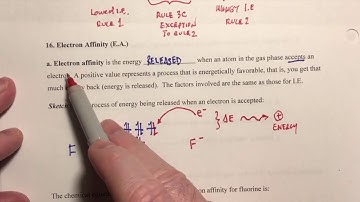 Lowest I.E. RULE 3C HIGHEST I.E
RULE 1 EXCEPTION RULE 2
TO RULE 2
16. Electron Affinity (E.A.)
a. Electron affinity is the energy RELEASED when an atom in the gas phase accepts an
electron. A positive value represents a process that is energetically favorable, that is, you get that
much back (energy is released). The factors involved are the same as those for I.E.
Sketch process of energy being released when an electron is accepted:
e⁻ ΔE ⊕
F F⁻ ENERGY
The chemical affinity for fluorine is: